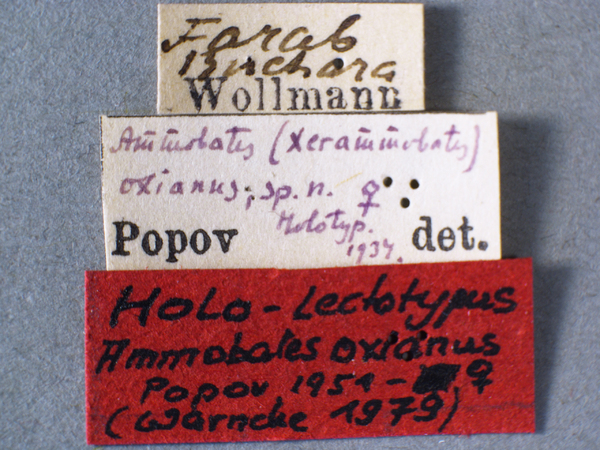 Farab
Buchara
Wollmann
Ammobates (Xerammobates)
oxianus, sp. n. ♀
Holotyp.
Popov det.
1934.
Holo-Lectotypus
Ammobates oxianus
Popov 1951 - ♀
(Warncke 1979)